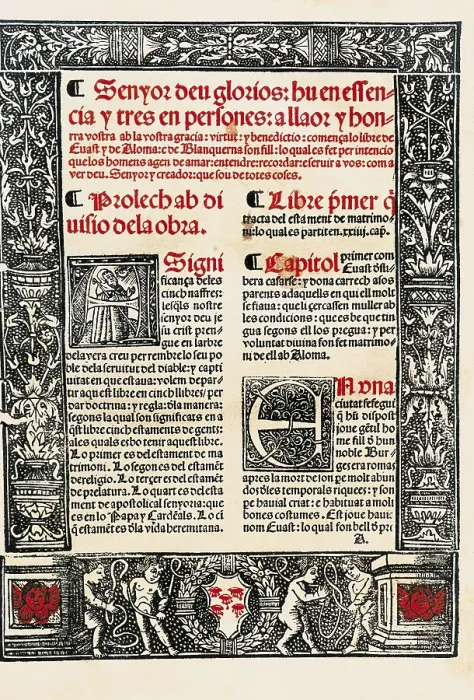 ¶ Senyor deu glorios: hu en essen-
cia y tres en persones: a llaor y hon-
rra vostra ab la vostra gracia: virtut: y benedictio: comença lo libre de
Euast y de Aloma: e de Blanquerna son fill: lo qual es fet per intencio
que los homens agen de amar: entendre: recordar: e seruir a vos: com a
ver deu. Senyor y creador: que sou de totes coses.
¶ Prolech ab di
uisio dela obra.
Signi
ficança deles
cinch naffres:
lesq̃ls nostre
senyor deu je
su crist pren-
gue en larbre
dela vera creu per rembre lo seu po
ble dela seruitut del diable: y capti
uitat en que estaua: volem depar-
tir aquest libre en cinch llibres/ per
dar doctrina: y regla: dla manera:
segons la qual son significats en a
q̃st libre cinch estaments de gents:
als quals es bo tenir aquest libre.
Lo primer es del estament de ma
trimoni. Lo segon es del estamẽt
de religio. Lo terçer es del estamẽt
de prelatura. Lo quart es del esta
ment de apostolical senyoria: que
es en lo Papa y Cardẽals. Lo cĩ
q̃ estamẽt es dla vida heremitana.
¶ Libre p̃mer q̃
tracta del estament de matrimo-
ni: lo qual es partit en .xxiiij. cap.
¶ Capitol primer com
Euast
bera casarse: y dona carrech a sos
parents adaquells en qui ell molt
se fiaua: que li çercassen muller ab
les condicions: que es be que tin
gua segons ell los pregua: y per
voluntat diuina fon fet matrimo-
ni de ell ab Aloma.
EN vna
ciutat se segui
q̃ hũ dispost
joue gẽtil ho
me fill d hun
noble Bur-
ges era romas
apres la mort de son pe molt abun
dos dles temporals riquees: y son
pe hauial criat: e habituat a molt
bones costumes. Est joue hauie
nom Euast: lo qual fon bell d p̃re
A.